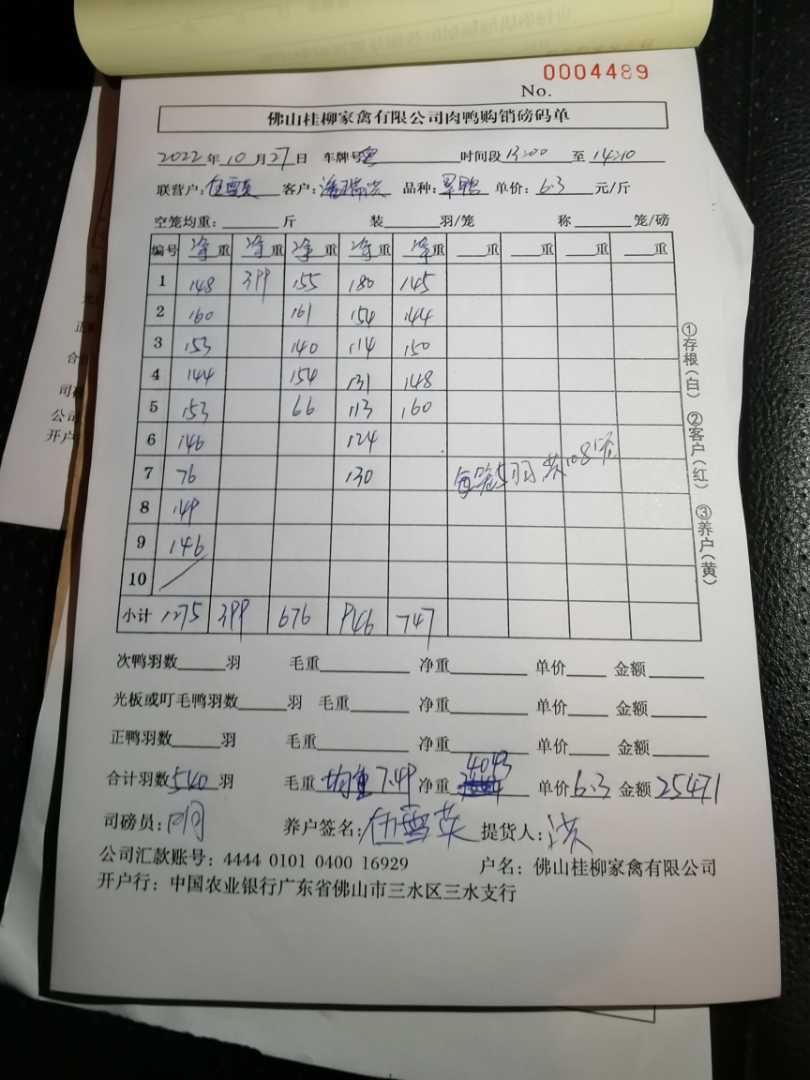 0004489
No.
佛山桂柳家禽有限公司肉鸭购销磅码单
2022年10月27日 车牌号 时间段13:00至14:10
联营户:伍雪英 客户: 品种: 单价:6.3元/斤
空笼均重:____斤 装____羽/笼 称____笼/磅
编号 净重 净重 净重 净重 净重 __重 __重 __重 __重
1 148 399 155 180 145
2 160 161 154 144
3 153 140 114 150
4 144 154 131 148
5 153 66 113 160
6 146 124
7 76 130 每笼5羽 共108笼
8 149
9 146
10
小计 1275 399 676 946 747
①存根(白) ②客户(红) ③养户(黄)
次鸭羽数____羽 毛重____ 净重____ 单价____ 金额____
光板或叮毛鸭羽数____羽 毛重____ 净重____ 单价____ 金额____
正鸭羽数____羽 毛重____ 净重____ 单价____ 金额____
合计羽数540羽 毛重 均重7.49 净重4043 单价6.3 金额25471
司磅员: 养户签名:伍雪英 提货人:洪
公司汇款账号: 4444 0101 0400 16929 户名: 佛山桂柳家禽有限公司
开户行: 中国农业银行广东省佛山市三水区三水支行